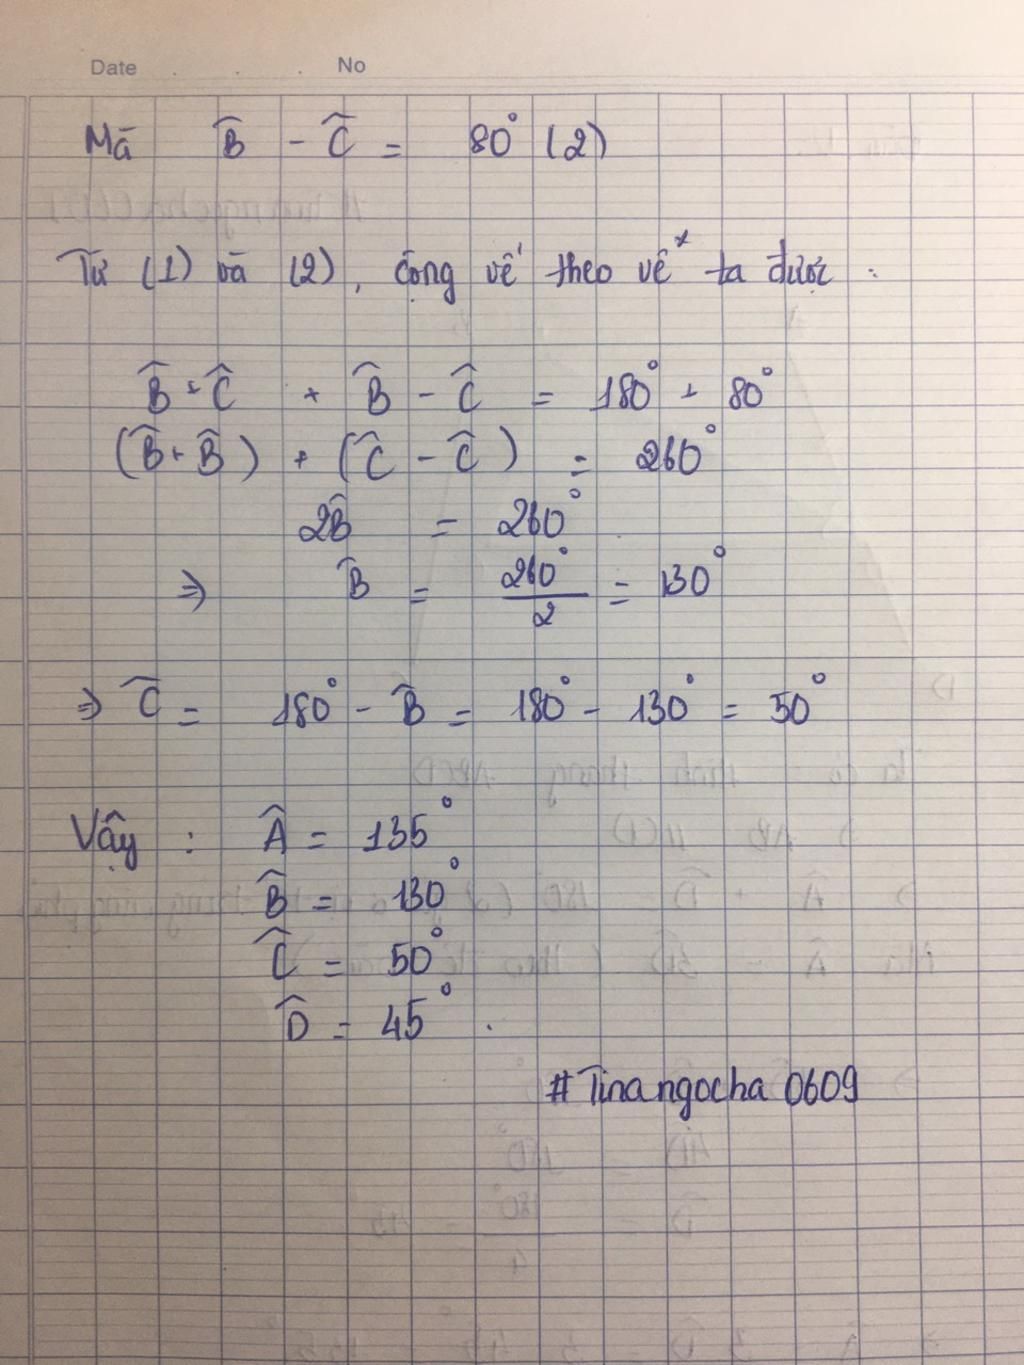 Date No
Mà B̂ - Ĉ = 80° (2)
Từ (1) và (2), cộng vế theo vế ta được :
B̂ + Ĉ + B̂ - Ĉ = 180° + 80°
(B̂ + B̂) + (Ĉ - Ĉ) = 260°
2B̂ = 260°
⇒ B̂ = 260°/2 = 130°
⇒ Ĉ = 180° - B̂ = 180° - 130° = 50°
Vậy : Â = 135°
B̂ = 130°
Ĉ = 50°
D̂ = 45° .
#Tinangocha0609